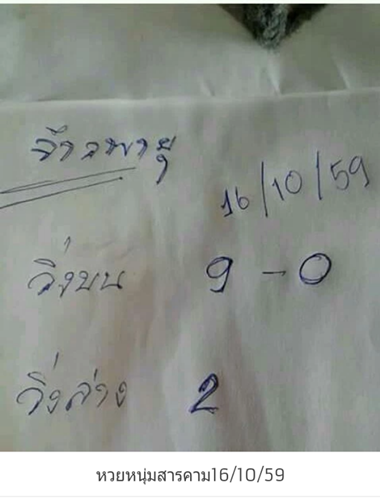 จ้าวพายุ
16/10/59
วิ่งบน 9 - 0
วิ่งล่าง 2
หวยหนุ่มสารคาม16/10/59